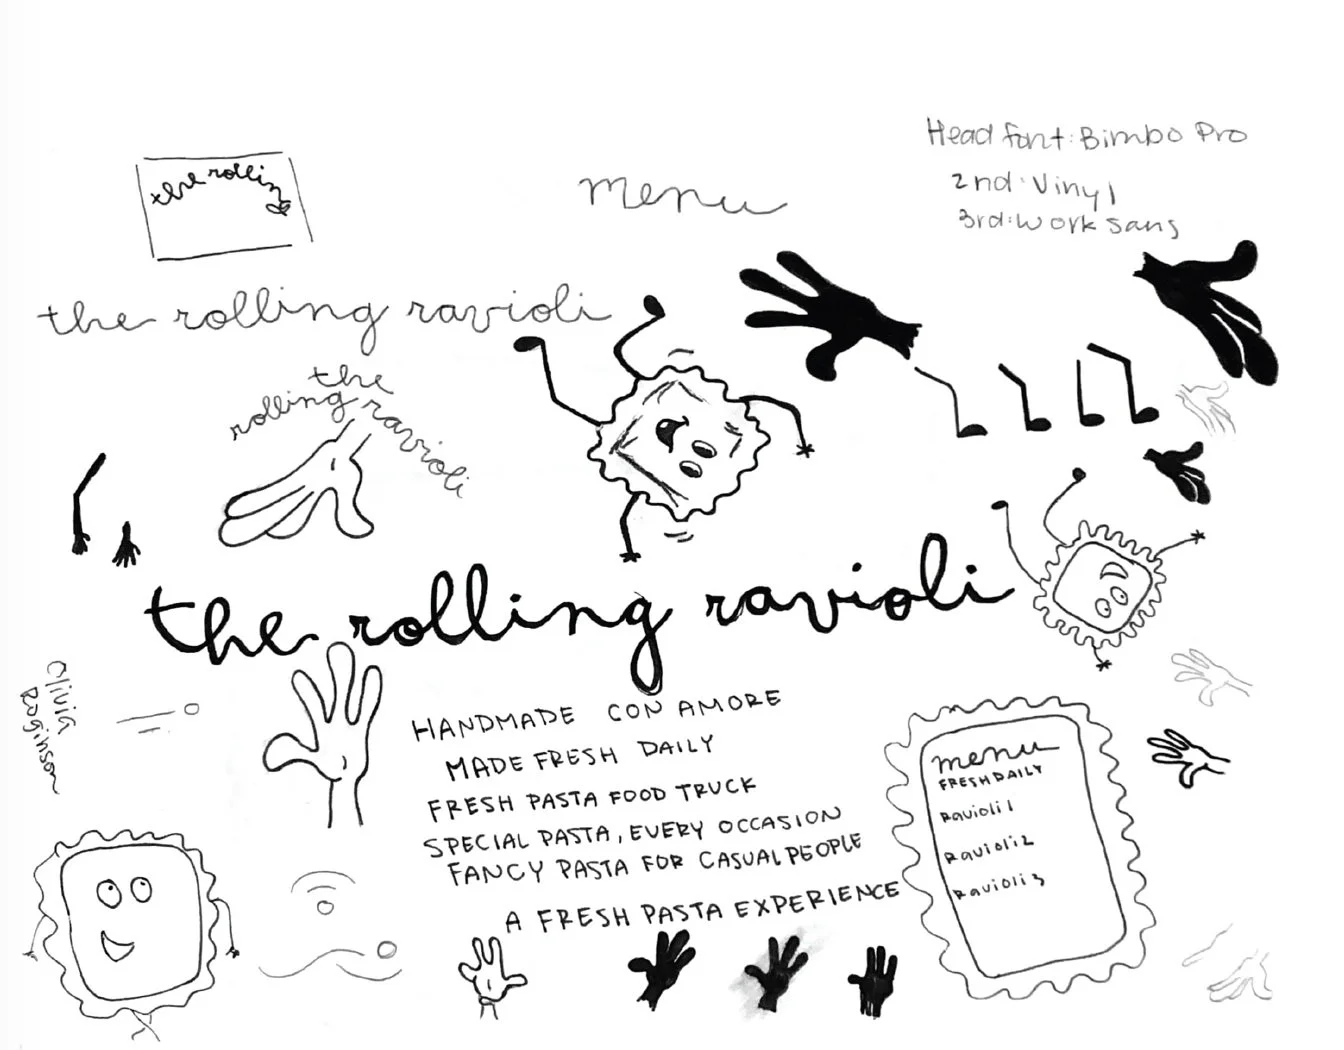 Head font: Bimbo Pro
2nd: Vinyl
3rd: Work Sans
the rollin
menu
the rolling ravioli
the
rolling ravioli
the rolling ravioli
Olivia
Roginson
HANDMADE CON AMORE
MADE FRESH DAILY
FRESH PASTA FOOD TRUCK
SPECIAL PASTA, EVERY OCCASION
FANCY PASTA FOR CASUAL PEOPLE
A FRESH PASTA EXPERIENCE
menu
FRESH DAILY
Ravioli 1
Ravioli 2
Ravioli 3